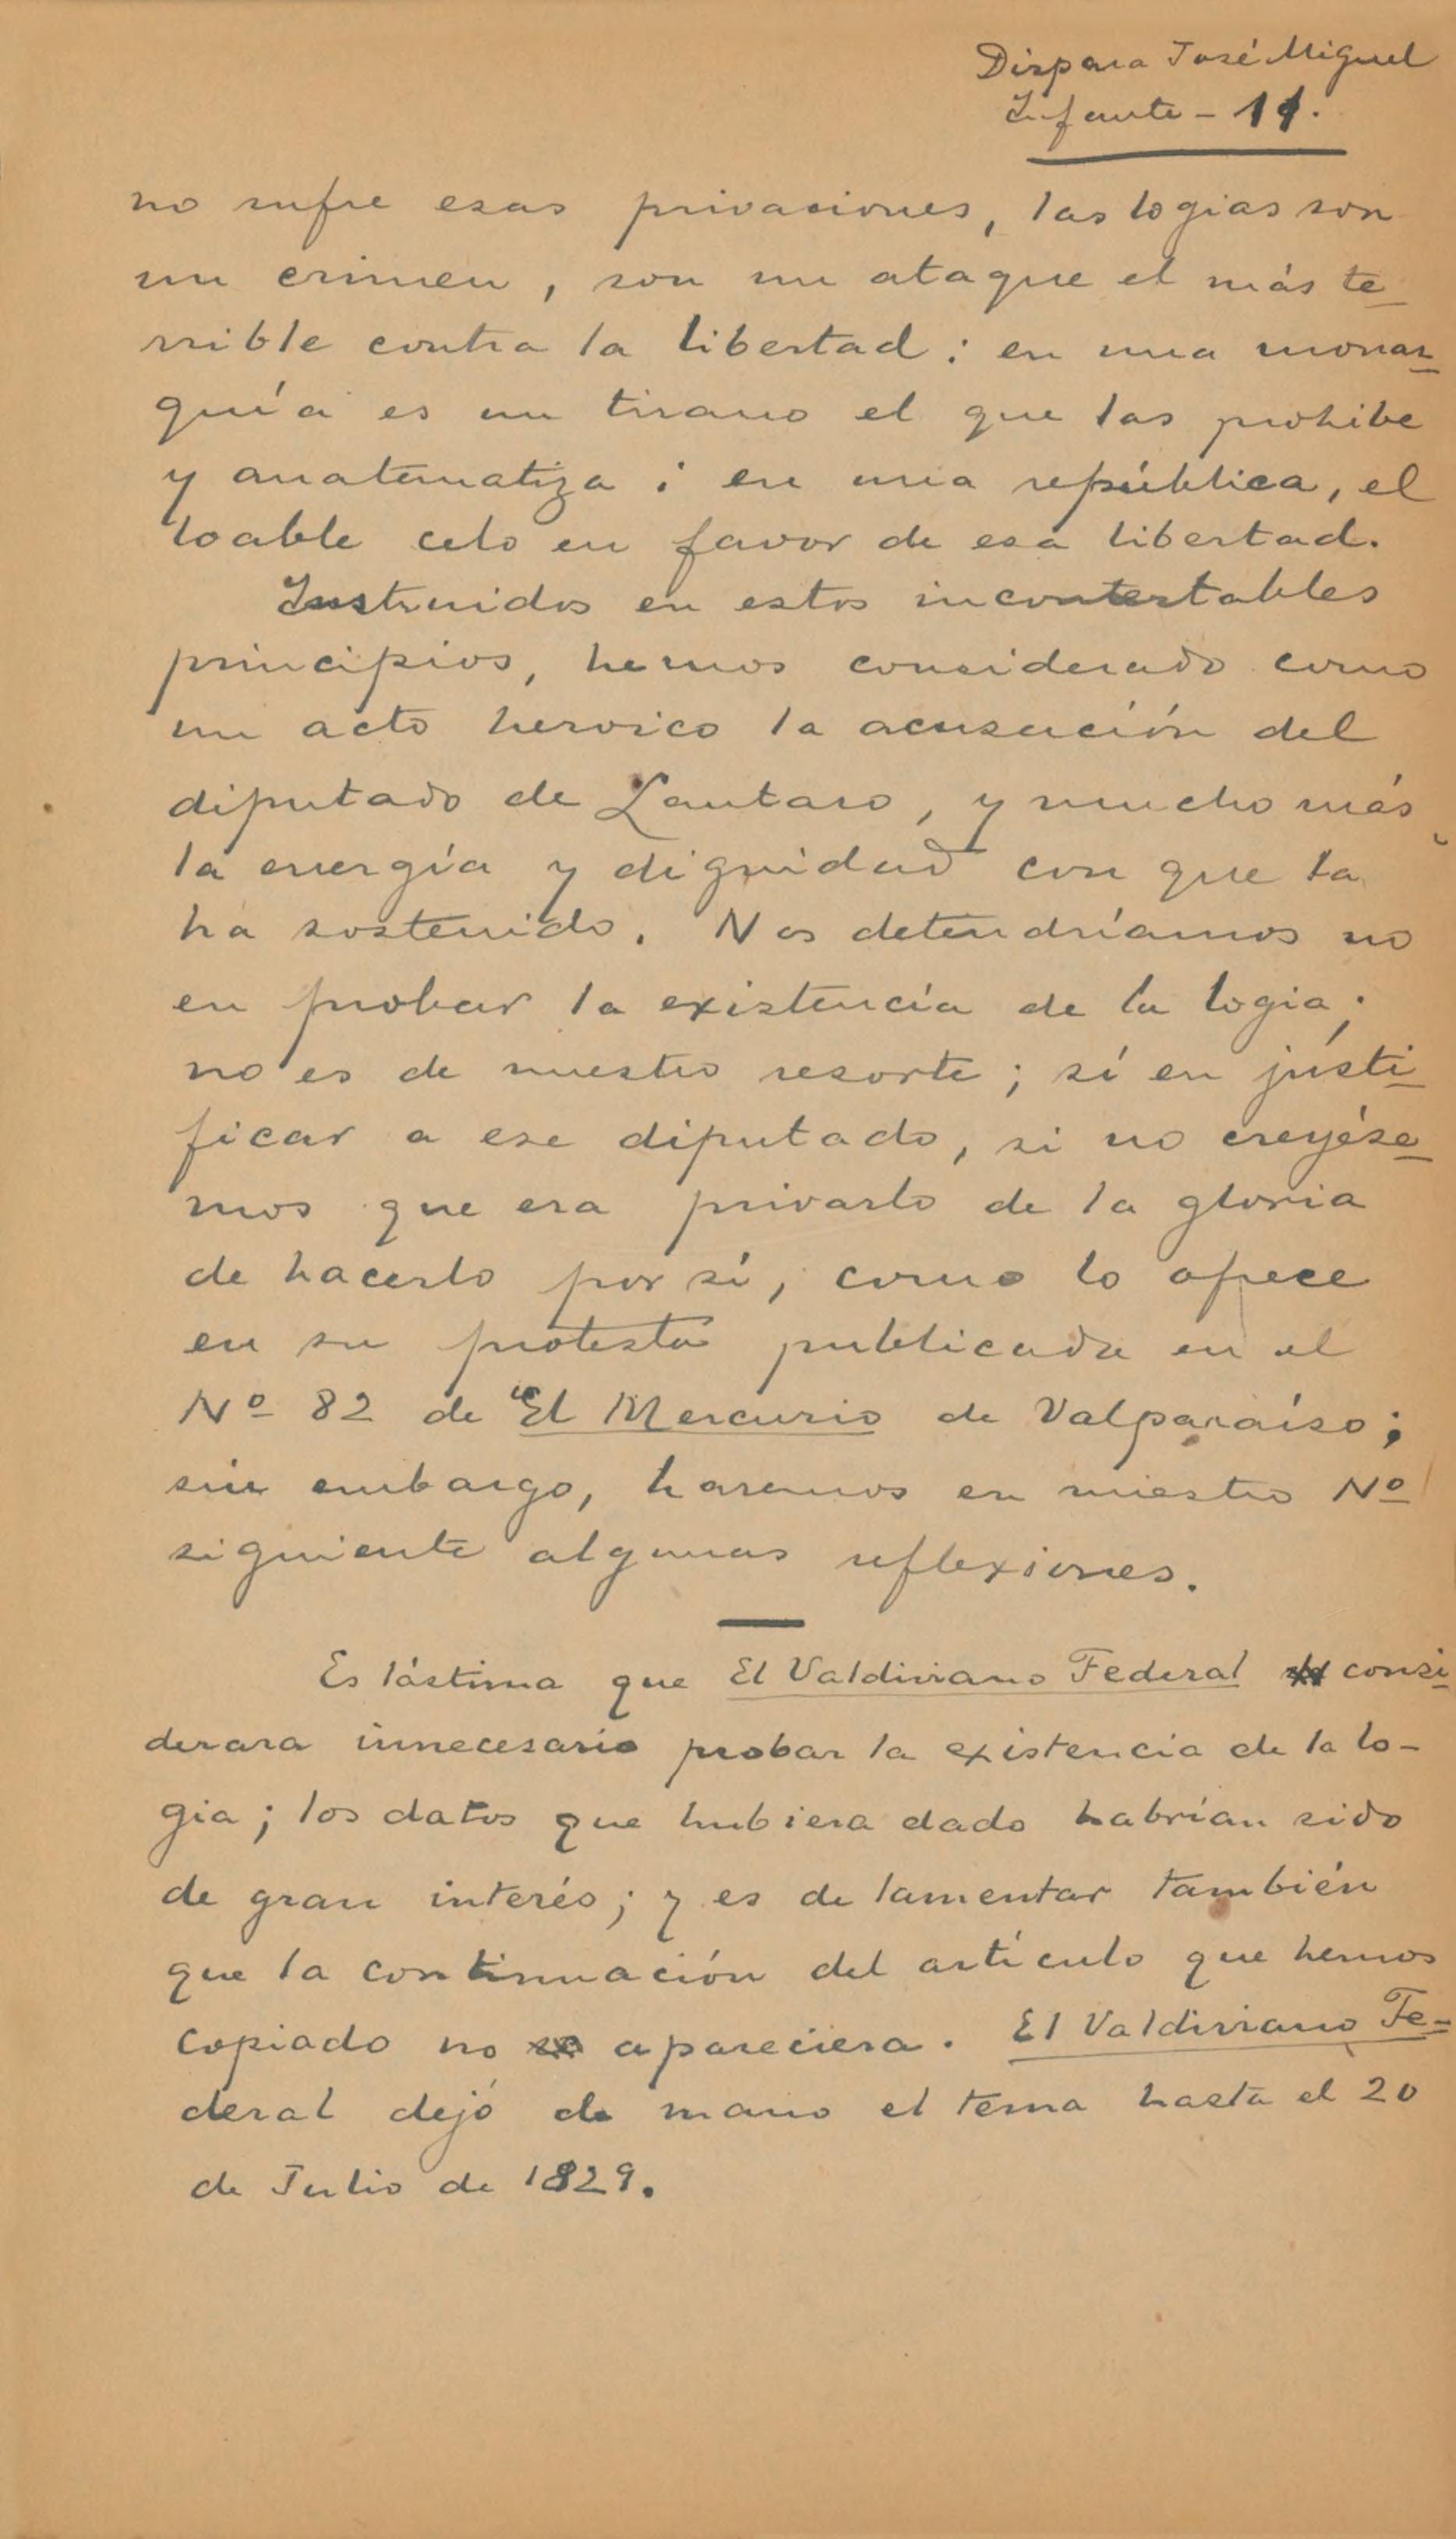 Dispara José Miguel
Infante - 11.
no sufre esas privaciones, las logias son
un crimen, son un ataque el más te-
rrible contra la libertad: en una monar-
quía es un tirano el que las prohibe
y anatematiza; en una república, el
loable celo en favor de esa libertad.
Instruidos en estos incontestables
principios, hemos considerado como
un acto heroico la acusación del
diputado de Lautaro, y mucho más
la energía y dignidad con que la
ha sostenido. Nos detendríamos no
en probar la existencia de la logia;
no es de nuestro resorte; sí en justi-
ficar a ese diputado, si no creyése-
mos que era privarlo de la gloria
de hacerlo por sí, como lo ofrece
en su protesta publicada en el
Nº 82 de "El Mercurio de Valparaíso;
sin embargo, haremos en nuestro Nº
siguiente algunas reflexiones.
Es lástima que El Valdiviano Federal consi-
derara innecesario probar la existencia de la lo-
gia; los datos que hubiera dado habrían sido
de gran interés; y es de lamentar también
que la continuación del artículo que hemos
copiado no apareciera. El Valdiviano Fe-
deral dejó de mano el tema hasta el 20
de Julio de 1829.